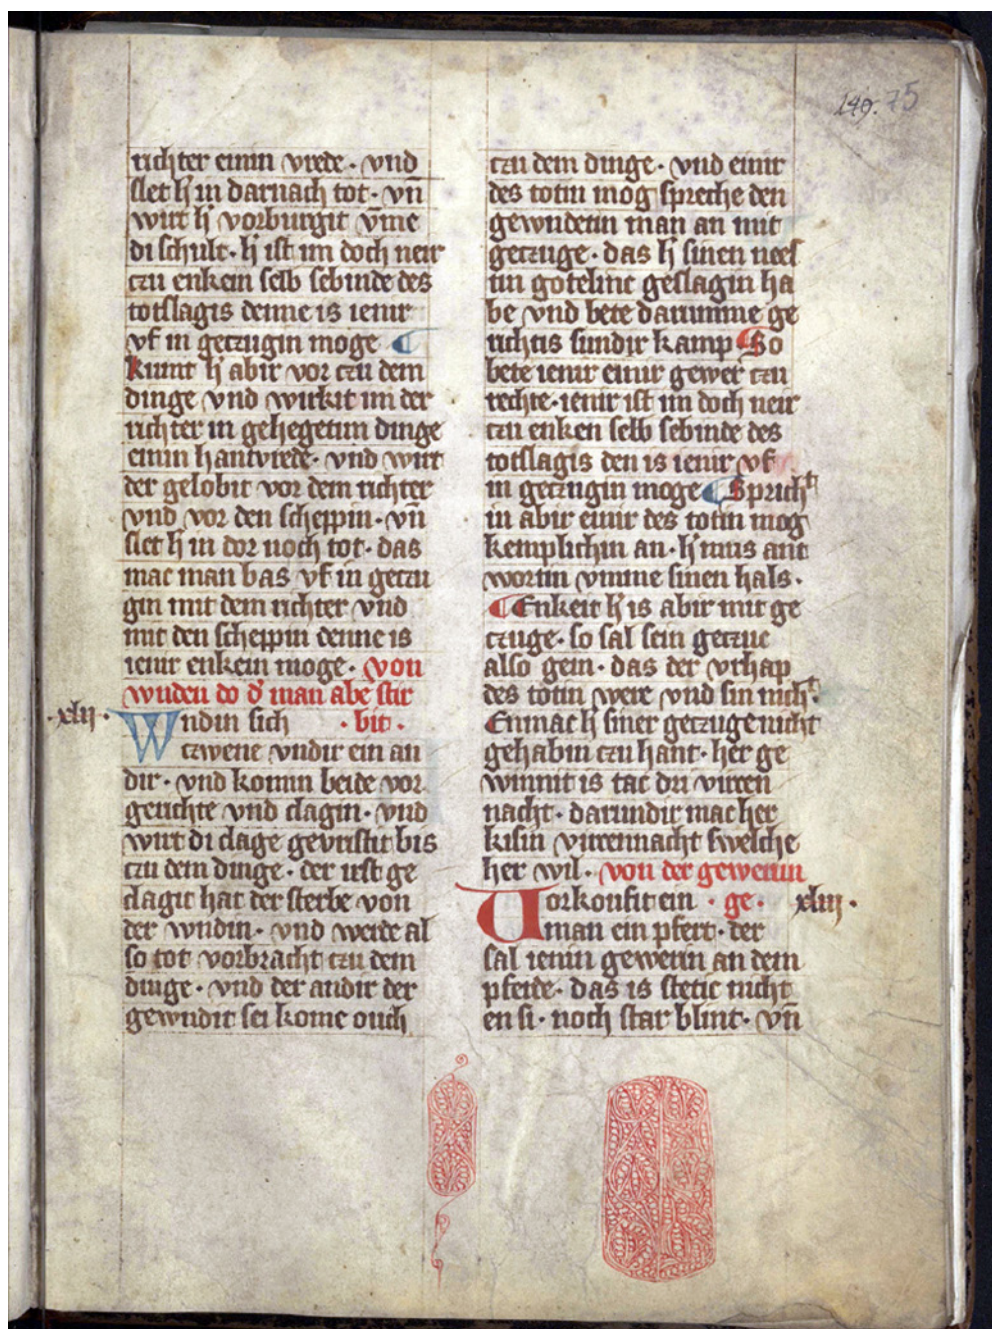 149. 75
richter einin vrede · vnd
slet h̓ in darnach tot · vn̄
wirt h̓ vorburgit vm̄me
di schult · h̓ ist im doch neir
czu enkein selb sebinde des
totslagis denne is ienir
vf in geczugin moge ¶
kumt h̓ abir vor czu dem
dinge vnd wirkit im der
richter in gehegetim dinge
einin hantvrede · vnd wirt
der gelobit vor dem richter
vnd vor den scheppin · vn̄
slet h̓ in dor noch tot · das
mac man bas vf in geczu
gin mit dem richter vnd
mit den scheppin denne is
ienir enkein moge · von
wnden do d̓ man abe stir
· bit ·
· xlij · Wndin sich
czwene vndir ein an
dir · vnd komin beide vor
gerichte vnd clagin · vnd
wirt di clage gevristit bis
czu dem dinge · der irst ge
clagit hat der sterbe von
der wndin · vnd werde al
so tot vorbracht czu dem
dinge · vnd der andir der
gewndit sei kome ouch
czu dem dinge · vnd einir
des totin mog spreche den
gewndetin man an mit
geczuge · das h̓ sinen nees
tin gotelinc geslagin ha
be vnd bete darumme ge
richtis sundir kamp ¶ So
bete ienir einir gewer czu
rechte · ienir ist im doch neir
czu enken selb sebinde des
totslagis den is ienir vf
in geczugin moge ¶ Sprichͭ
in abir einir des totin mog
kemplichin an · h̓ mus ant
wortin vmme sinen hals ·
¶ Enkeit h̓ is abir mit ge
czuge · so sal sein geczuc
also gein · das der vrhap
des totin were vnd sin nichͭ ·
Enmac h̓ siner geczuge nicht
gehabin czu hant · her ge
winnit is tac dri virczen
nacht · darundir mac her
kisin virczennacht swelche
her wil · von der gewerun
· ge ·
Uorkoufit ein · xliij ·
man ein pfert · der
sal ienin gewerin an dem
pferde · das is stetic nicht
en si · noch star blint · vn̄